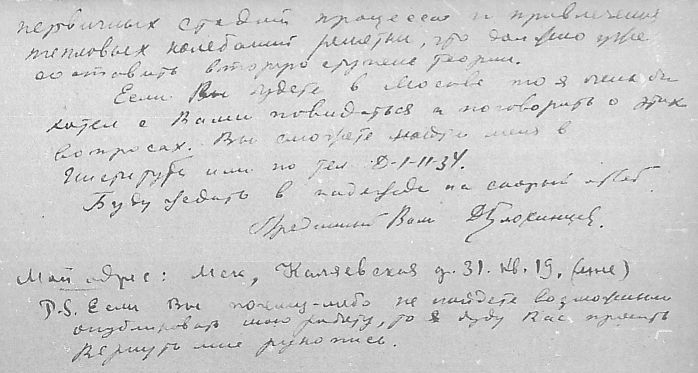 первичных стадий процесса и привлечения
тепловых колебаний решетки, что должно уже
составить вторую ступень теории.
Если Вы будете в Москве то я очень бы
хотел с Вами повидаться и поговорить о этих
вопросах. Вы сможете найти меня в
Институте или по тел Д-1-11-34.
Буду ждать в надежде на скорый ответ.
Преданный Вам Д Блохинцев.
Мой адрес: Мск, Каляевская д. 31. кв. 19. (мне)
P.S. Если Вы почему-либо не найдете возможным
опубликовать мою работу, то я буду Вас просить
вернуть мне рукопись.